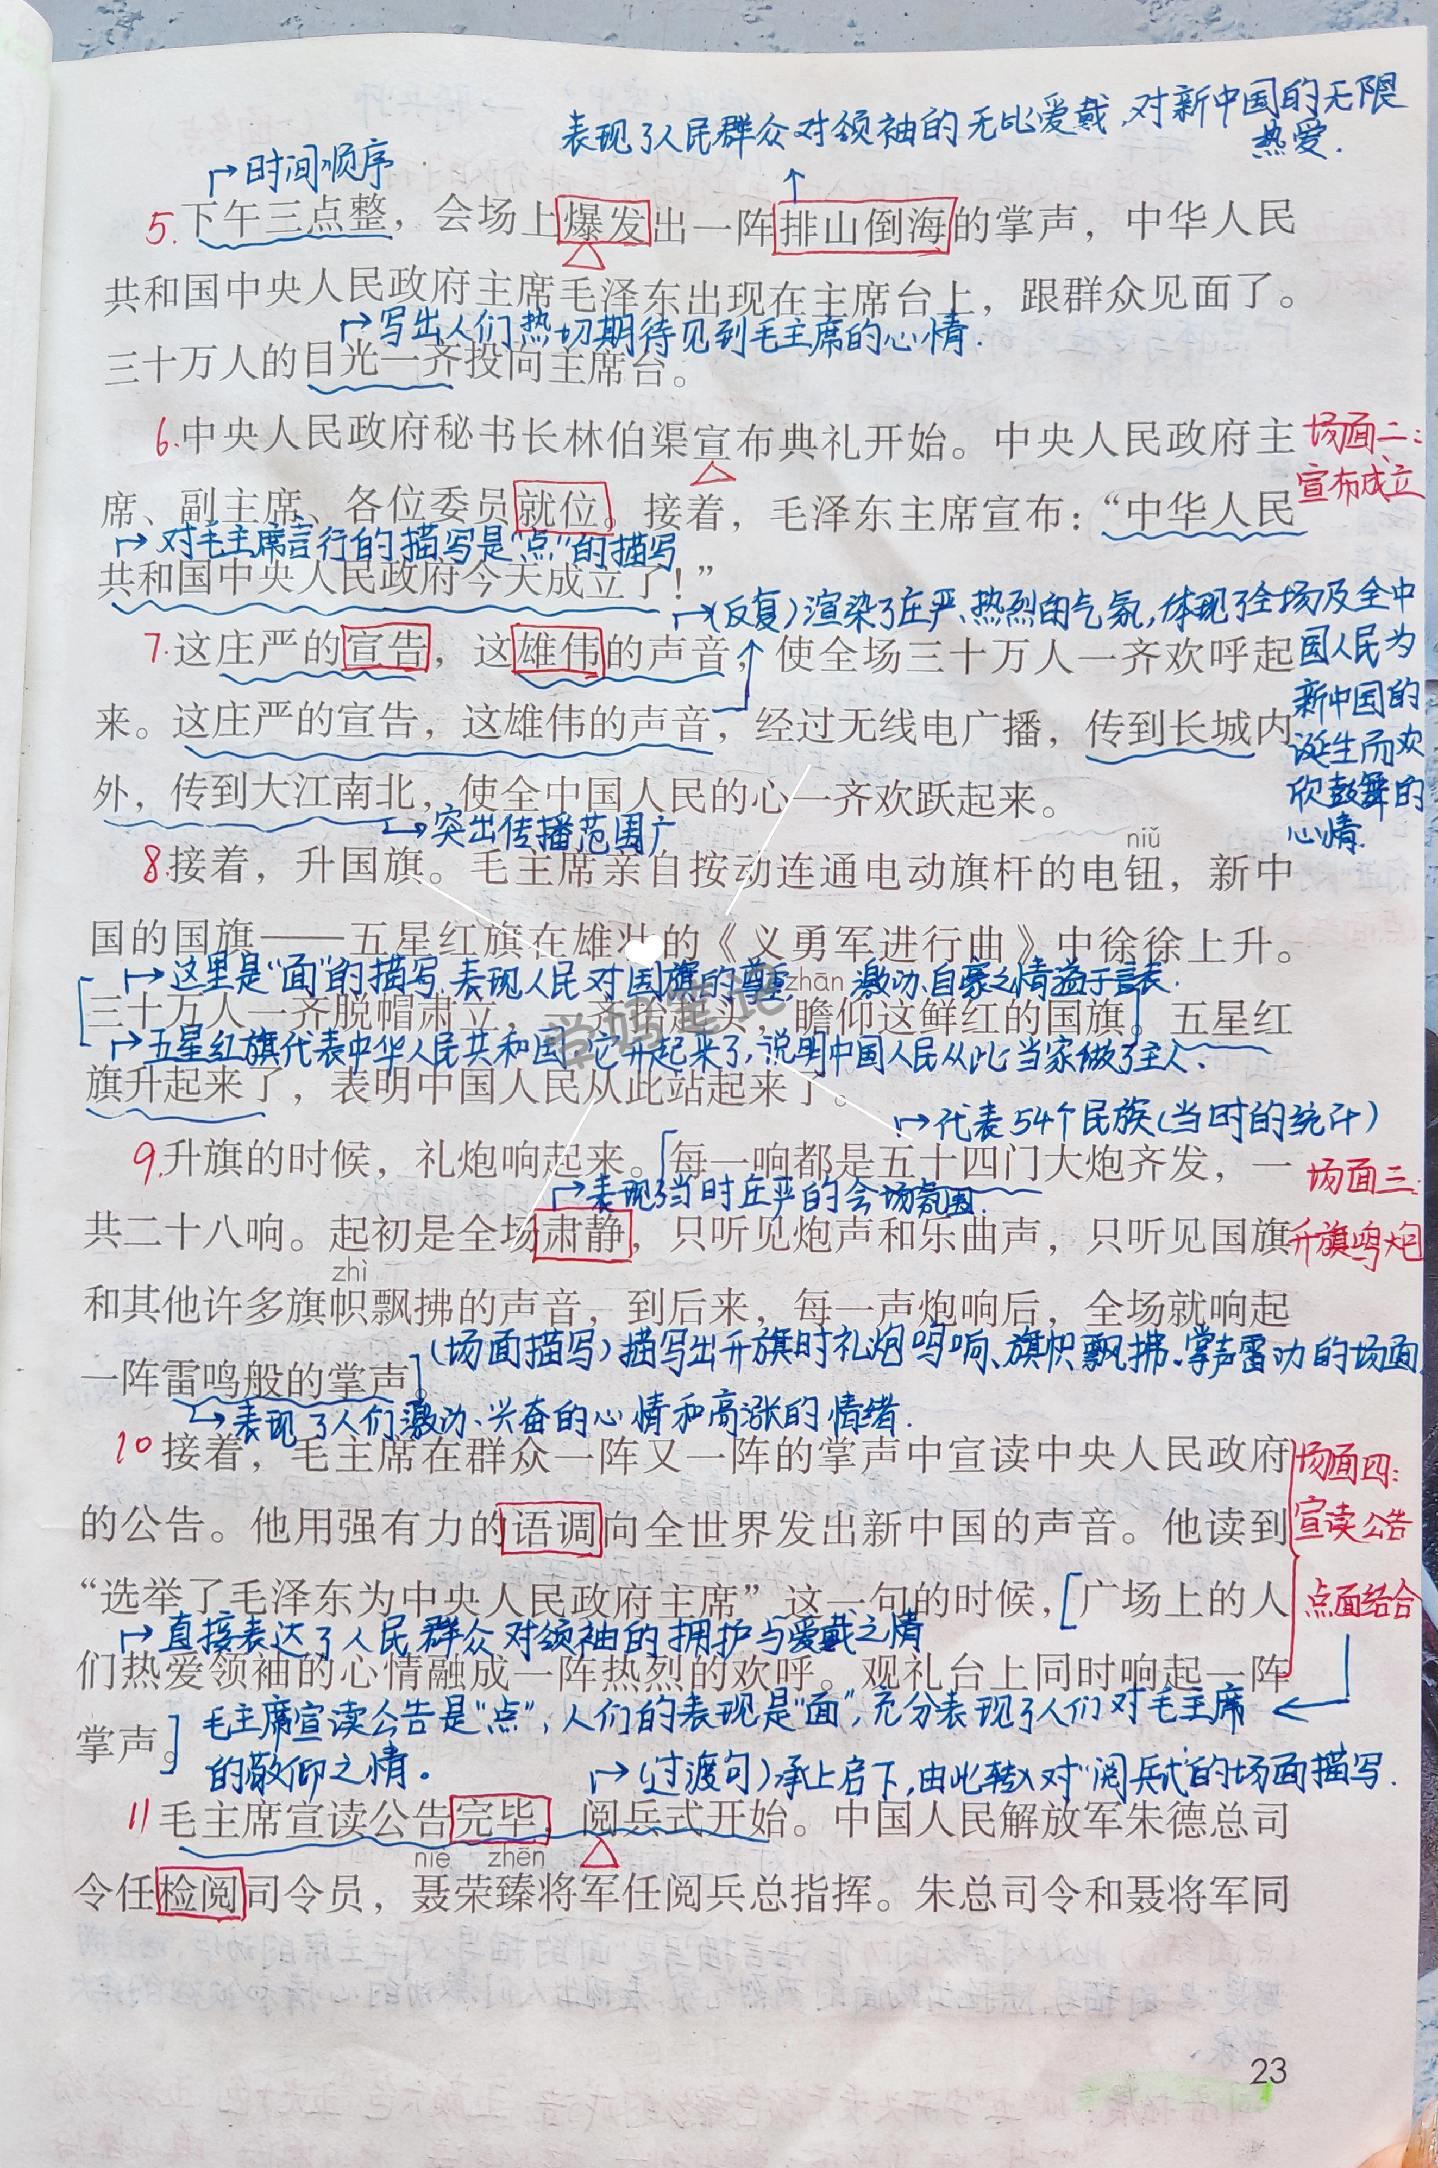 表现了人民群众对领袖的无比爱戴,对新中国的无限
热爱.
时间顺序
5.下午三点整，会场上爆发出一阵排山倒海的掌声，中华人民
共和国中央人民政府主席毛泽东出现在主席台上，跟群众见面了。
写出人们热切期待见到毛主席的心情.
三十万人的目光一齐投向主席台。
6.中央人民政府秘书长林伯渠宣布典礼开始。中央人民政府主
场面二:
宣布成立
席、副主席、各位委员就位。接着，毛泽东主席宣布：“中华人民
对毛主席言行的描写是“点”的描写
共和国中央人民政府今天成立了！”
(反复)渲染了庄严、热烈的气氛,体现了全场及全中
国人民为
新中国的
诞生而欢
欣鼓舞的
心情.
7.这庄严的宣告，这雄伟的声音，使全场三十万人一齐欢呼起
来。这庄严的宣告，这雄伟的声音，经过无线电广播，传到长城内
外，传到大江南北，使全中国人民的心一齐欢跃起来。
突出传播范围广
niǔ
8.接着，升国旗。毛主席亲自按动连通电动旗杆的电钮，新中
国的国旗——五星红旗在雄壮的《义勇军进行曲》中徐徐上升。
这里是“面”的描写.表现人民对国旗的尊重, 激动、自豪之情溢于言表.
zhān
三十万人一齐脱帽肃立，一齐抬起头，瞻仰这鲜红的国旗。五星红
学妈笔记
五星红旗代表中华人民共和国,它升起来了,说明中国人民从此当家做了主人.
旗升起来了，表明中国人民从此站起来了。
代表54个民族(当时的统计)
9.升旗的时候，礼炮响起来。每一响都是五十四门大炮齐发，一
场面三:
升旗鸣炮
表现了当时庄严的会场氛围.
共二十八响。起初是全场肃静，只听见炮声和乐曲声，只听见国旗
zhì
和其他许多旗帜飘拂的声音，到后来，每一声炮响后，全场就响起
(场面描写)描写出升旗时礼炮鸣响、旗帜飘拂、掌声雷动的场面.
一阵雷鸣般的掌声。
表现了人们激动、兴奋的心情和高涨的情绪.
10接着，毛主席在群众一阵又一阵的掌声中宣读中央人民政府
场面四:
宣读公告
点面结合
的公告。他用强有力的语调向全世界发出新中国的声音。他读到
“选举了毛泽东为中央人民政府主席”这一句的时候，广场上的人
直接表达了人民群众对领袖的拥护与爱戴之情
们热爱领袖的心情融成一阵热烈的欢呼。观礼台上同时响起一阵
掌声。
毛主席宣读公告是“点”,人们的表现是“面”,充分表现了人们对毛主席
的敬仰之情。
(过渡句)承上启下,由此转入对“阅兵式”的场面描写.
11毛主席宣读公告完毕，阅兵式开始。中国人民解放军朱德总司
niè zhēn
令任检阅司令员，聂荣臻将军任阅兵总指挥。朱总司令和聂将军同
23